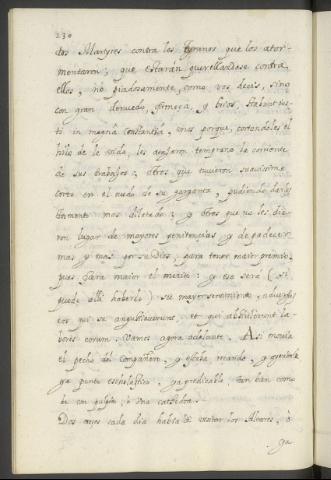 230
dos Martyres contra los tyranos que los ator-
mentaron; que estarán querellandose contra
ellos, no piadosamente, como vos decis, sino
con gran denuedo, firmeça, y brios, stabunt ius-
ti in magna constantia, unos porque, cortandoles el
hilo de la vida, les atajaron temprano la corriente
de sus trabajos; otros que tuvieron suavissimo
corte en el nudo de su garganta, pudiendo darles
tormento mas dilatado; y otros que no les die-
ron lugar de mayores penitencias, y de padecer
mas y mas por su dios, para tener maior premio,
pues fuera maior el merito: y esa será (si
puede allí haberlo) su mayor
por que se angustiaverunt, et qui abstulerunt la-
bores eorum. Vamos agora adelante. Asi movia
el pecho del compañero, y estaba reçando, y
ya punto escholastico, ya predicable, tan bien como
de un pulpito, o una cathedra.
Dos veces cada dia habia de visitar los Altares, o
ya